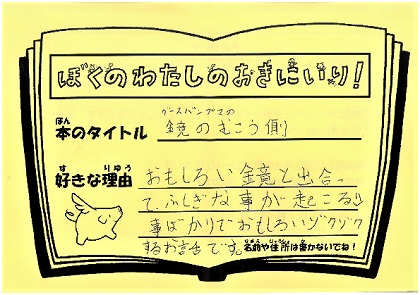 ぼくのわたしのおきにいり!
グースバンプスの
ほん
本のタイトル 鏡のむこう側
す りゆう
好きな理由 おもしろい鏡と出合っ
て、ふしぎな事が起こる
事ばかりでおもしろいゾクゾク
するお話です。
なまえ じゅうしょ か
名前や住所は書かないでね!